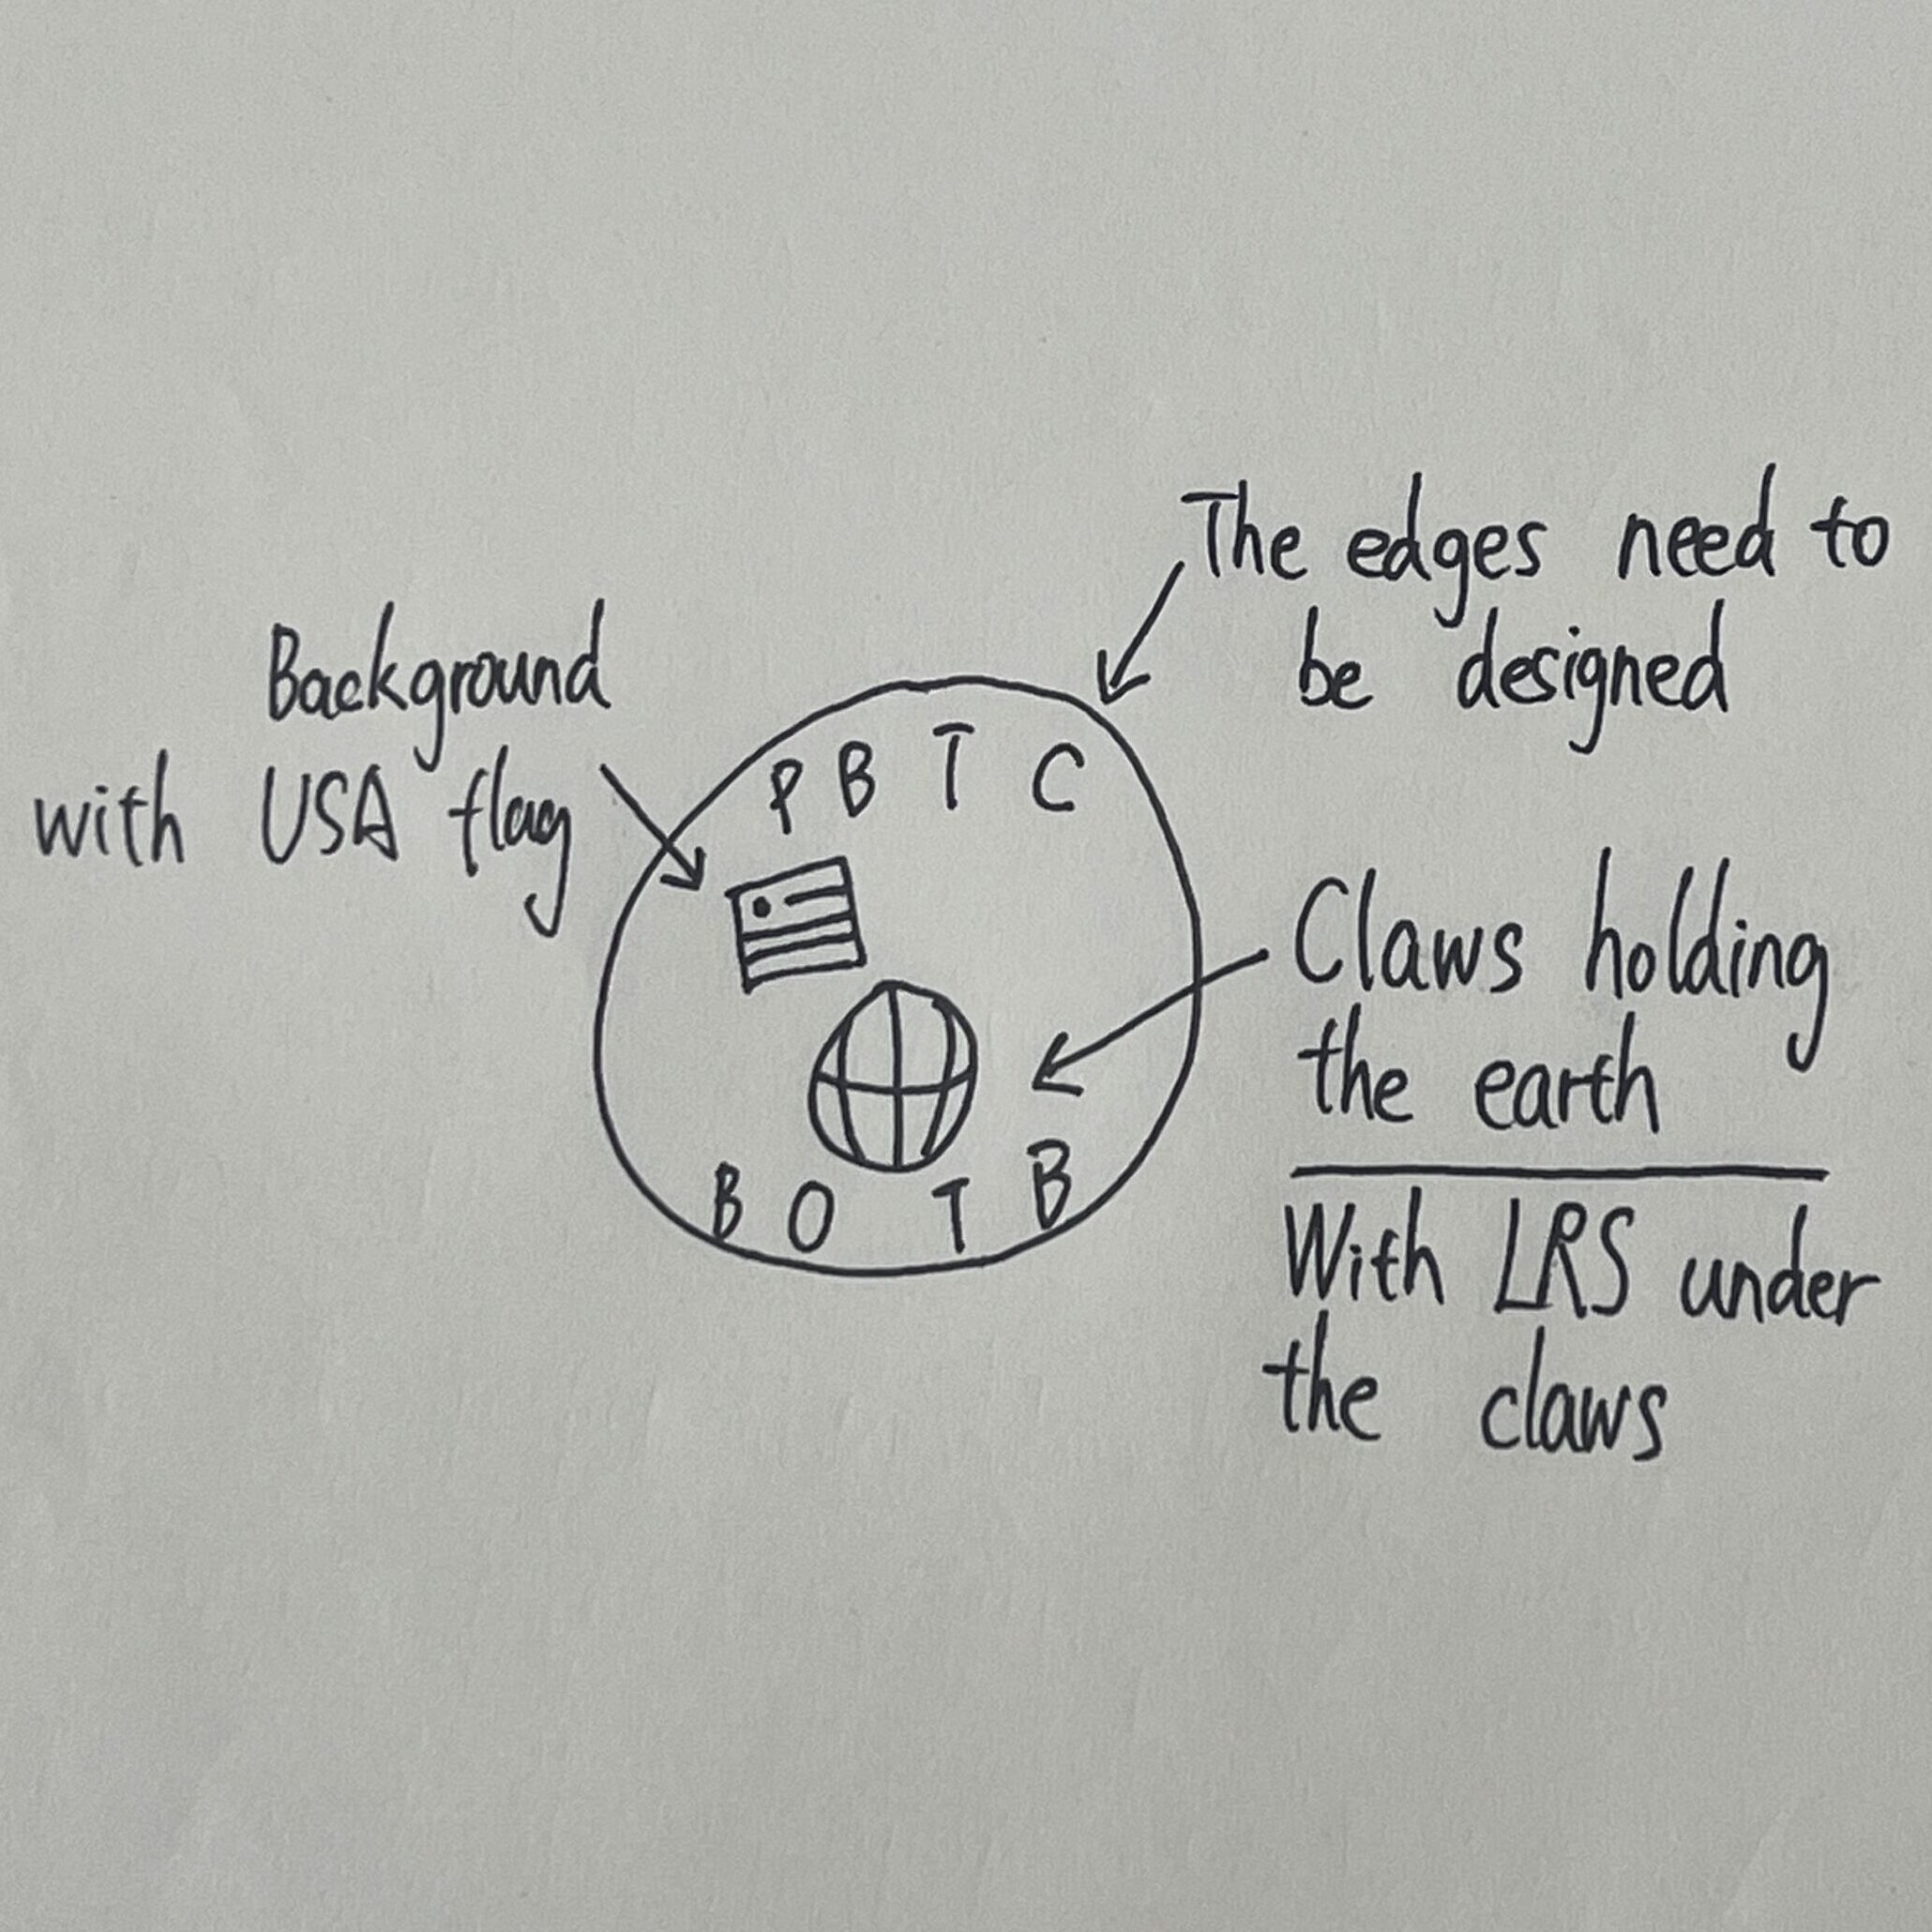 The edges need to
be designed
Background
with USA flag
P B T C
Claws holding
the earth
With LRS under
the claws
B O T B